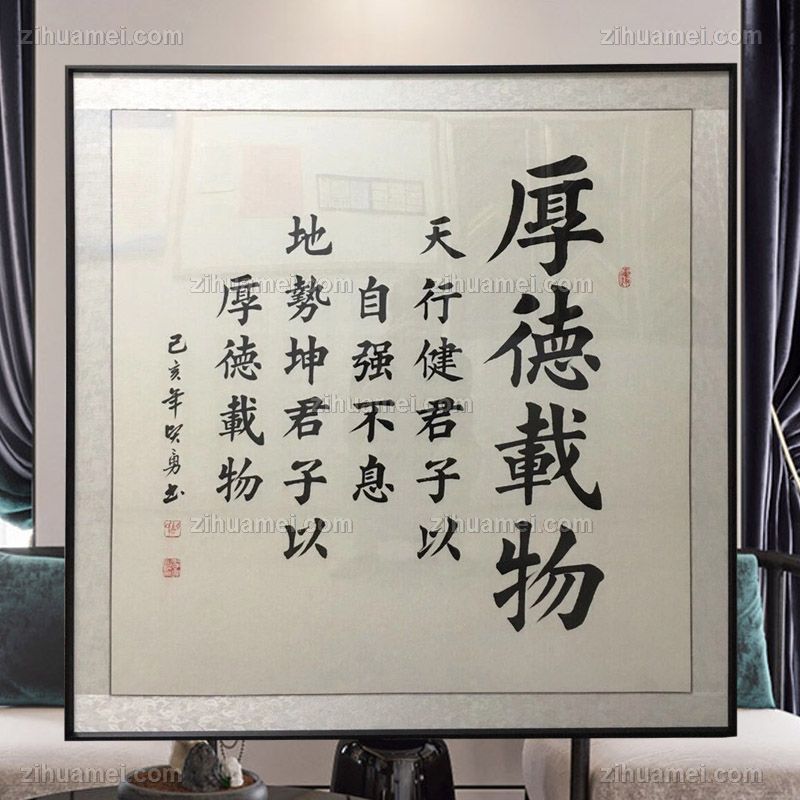 厚德載物
天行健君子以
自强不息
地勢坤君子以
厚德載物
己亥年賢勇書
zihuamei.com
zihuamei.com
zihuamei.com
zihuamei.com
zihuamei.com
zihuamei.com
zihuamei.com
zihuamei.com
zihuamei.com